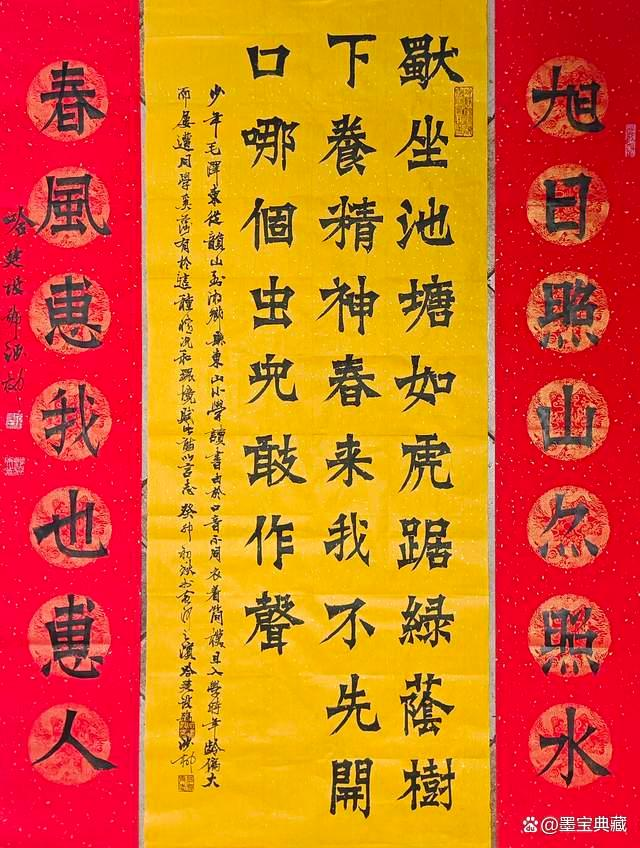 旭日照山亦照水
獸坐池塘如虎踞綠蔭樹
下養精神春来我不先開
口哪個虫兒敢作聲
少年毛澤東從韶山到湘鄉縣東山小學讀書由於口音不同衣着簡樸且入學時年齡偏大
而屢遭同學奚落有於這種情況和環境賦此詩以言志癸卯初秋
春風惠我也惠人
@墨宝典藏